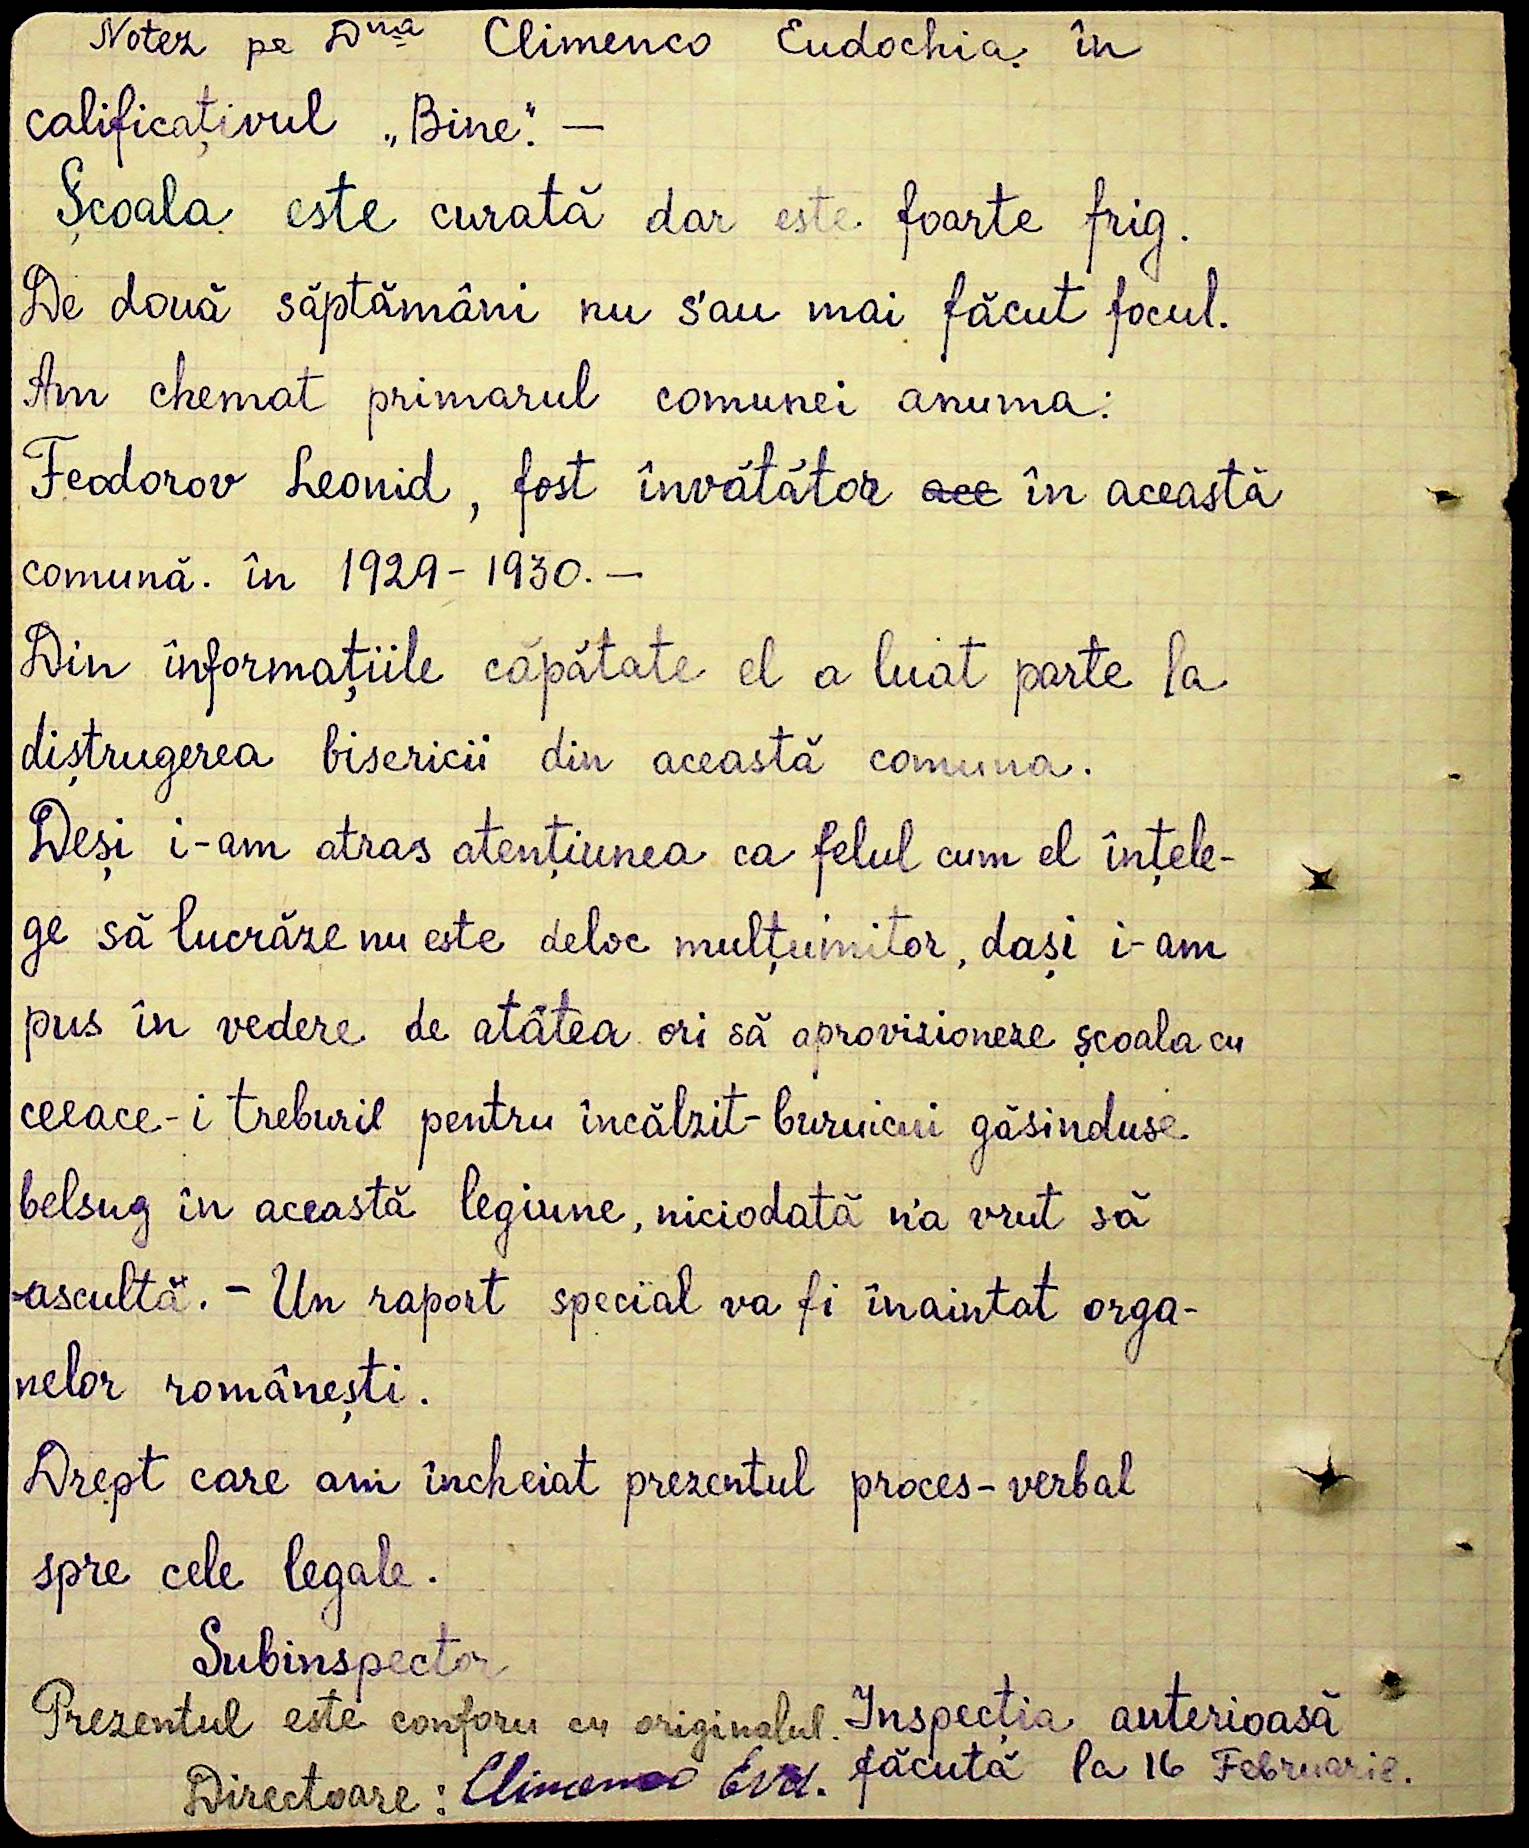 Notez pe Dna Climenco Eudochia în
calificațivul „Bine". —
Școala este curată dar este foarte frig.
De două săptămâni nu s'au mai făcut focul.
Am chemat primarul comunei anuma:
Feodorov Leonid, fost învătător ace în această
comună. în 1929-1930. —
Din informațiile căpătate el a luat parte la
diștrugerea bisericii din această comuna.
Deși i-am atras atențiunea ca felul cum el înțele-
ge să lucrăze nu este deloc mulțuimitor, dași i-am
pus în vedere de atâtea ori să aprovizioneze școala cu
ceeace-i treburil pentru încălzit- găsinduse
belsug în această legiune, niciodată n'a vrut să
ascultă. - Un raport special va fi înaintat orga-
nelor românești.
Drept care am încheiat prezentul proces-verbal
spre cele legale.
Subinspector
Prezentul este conform cu originalul. Inspecția anterioasă
făcută la 16 Februarie.
Directoare: Climenco Evd.